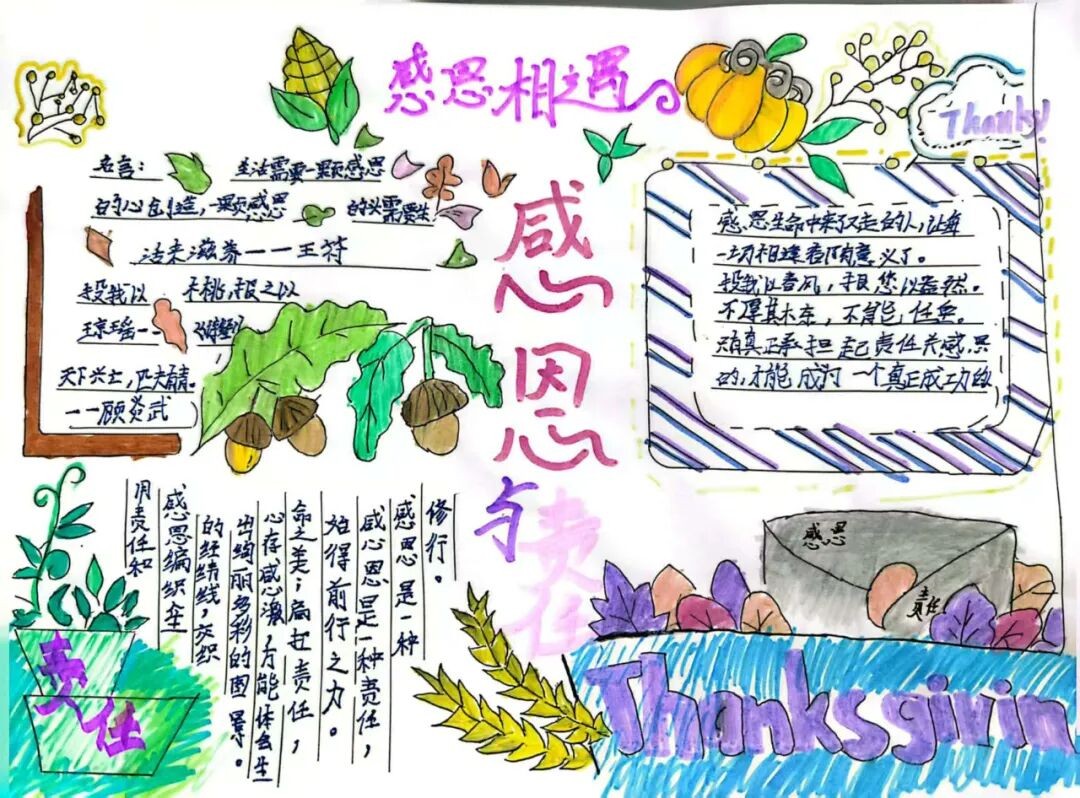 感恩相遇
Thanks!
名言: 生活需要一颗感恩
的心创造,一颗感恩 的心需要生
活来滋养——王符
投我以 木桃,报之以
琼瑶——
天下兴亡,匹夫有责。
——顾炎武
感恩
与
责任
感恩生命中来了又走的人,让每
一切相逢都有意义了。
投我以春风,报您以
不厚其 东,不能任重。
真正承担起责任 感恩
的,才能成为一个真正成功的
用责任和
感恩编织生
的经纬线,交织
出绚丽多彩的图景。
心存感激,方能体会生
命之美;肩扛责任,
始得前行之力。
感心恩是一种责任,
感恩是一种
修行。
责任
感恩
责任
Thanksgivin